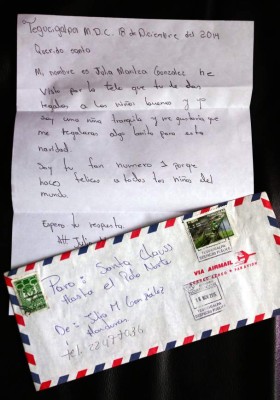 Tegucigalpa M.D.C. 8 de Diciembre del 2014
Querido santa
Mi nombre es Julia Montza Gonzalez he
visto por la tele que tu le das
regalos a los niños buenos y yo
soy una niña tranquila y me gustaria que
me regalaras algo bonito para esta
navidad.
Soy tu fan numero 1 porque
haces felices a todos los niños del
mundo.
Espero tu respuesta.
Att Julia
Para: Santa Clauss
Hasta el Polo Norte
De: Julia M. González
Honduras
VIA AIRMAIL